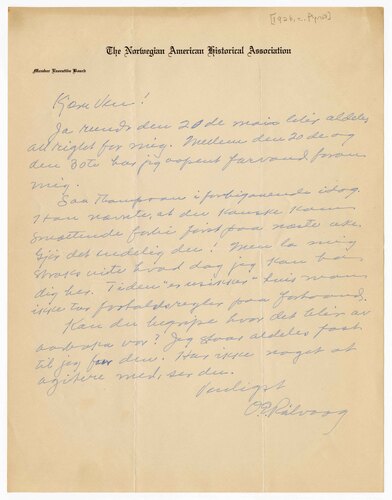 The Norwegian American Historical Association
Member Executive Board
Kjære Ven!
Ja rundt den 20de mais blir aldeles
allright for mig. Mellem den 20de og
den 30te har jeg aapent farvand foran
mig.
Saa Thompson i forbigaaende idag.
Han nævnte, at du kanske kom
smættende forbi først paa næste uke.
Gjør det endelig du! Men la mig
straks vite hvad dag jeg kan ha
dig her. Tiden "er usikker" hvis man
ikke tar forholdsregler paa forhaand.
Kan du begripe hvor det blir av
aarboka vor? Jeg staar aldeles fast
til jeg faar den. Har ikke noget at
agitere med, ser du.
Venligst
O.E. Rølvaag